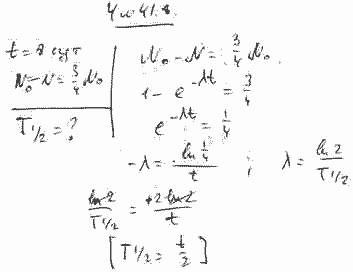 t = 8 сут
N₀ - N = 3/4 N₀
T 1/2 = ?
N₀ - N = 3/4 N₀
1 - e^(-λt) = 3/4
e^(-λt) = 1/4
-λ = ln 1/4 / t ; λ = ln 2 / T 1/2
ln 2 / T 1/2 = +2 ln 2 / t
[T 1/2 = t/2]